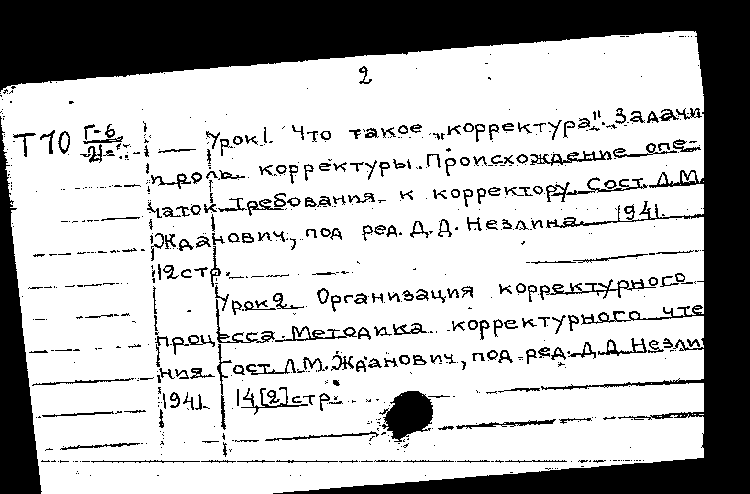 2
Т 10 Г-6
Урок 1. Что такое „корректура". Задачи
и роль корректуры. Происхождение опе-
чаток. Требования к корректору. Сост. Л.М.
Жданович, под ред. Д.Д. Незлина. 1941.
12 стр.
Урок 2. Организация корректурного
процесса. Методика корректурного чте
ния. Сост. Л.М. Жданович, под ред. Д.Д. Незли
1941. 14,[2] стр.